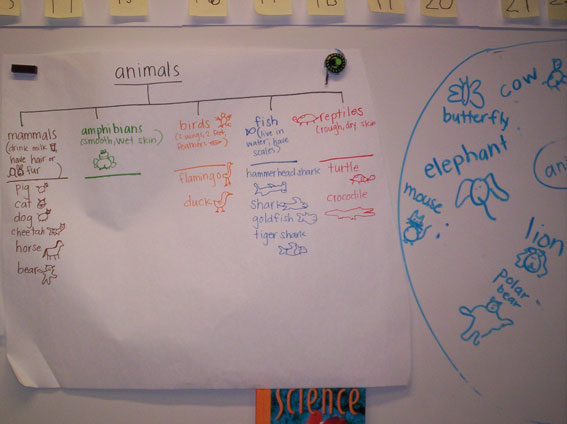 17
18
19
20
21
22
animals
mammals
(drink milk
have hair or
fur)
pig
cat
dog
cheetah
horse
bear
amphibians
(smooth, wet skin)
birds
flamingo
duck
fish
(live in
water, have
scales)
hammerhead shark
shark
goldfish
tiger shark
reptiles
(rough, dry skin
turtle
crocodile
cow
butterfly
elephant
mouse
ani
lion
polar
bear
science